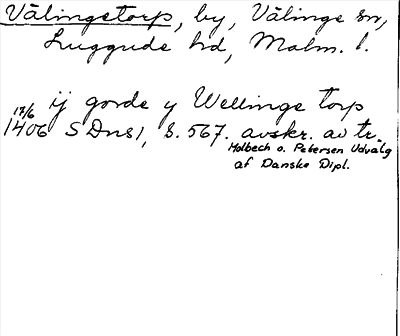 Välingetorp, by, Välinge sn,
Luggude hd, Malm. l.
ij gorde y Wellinge torp
17/6
1406 SDns1, s. 567. avskr. av tr.
Holbech o. Petersen Udvalg
af Danske Dipl.